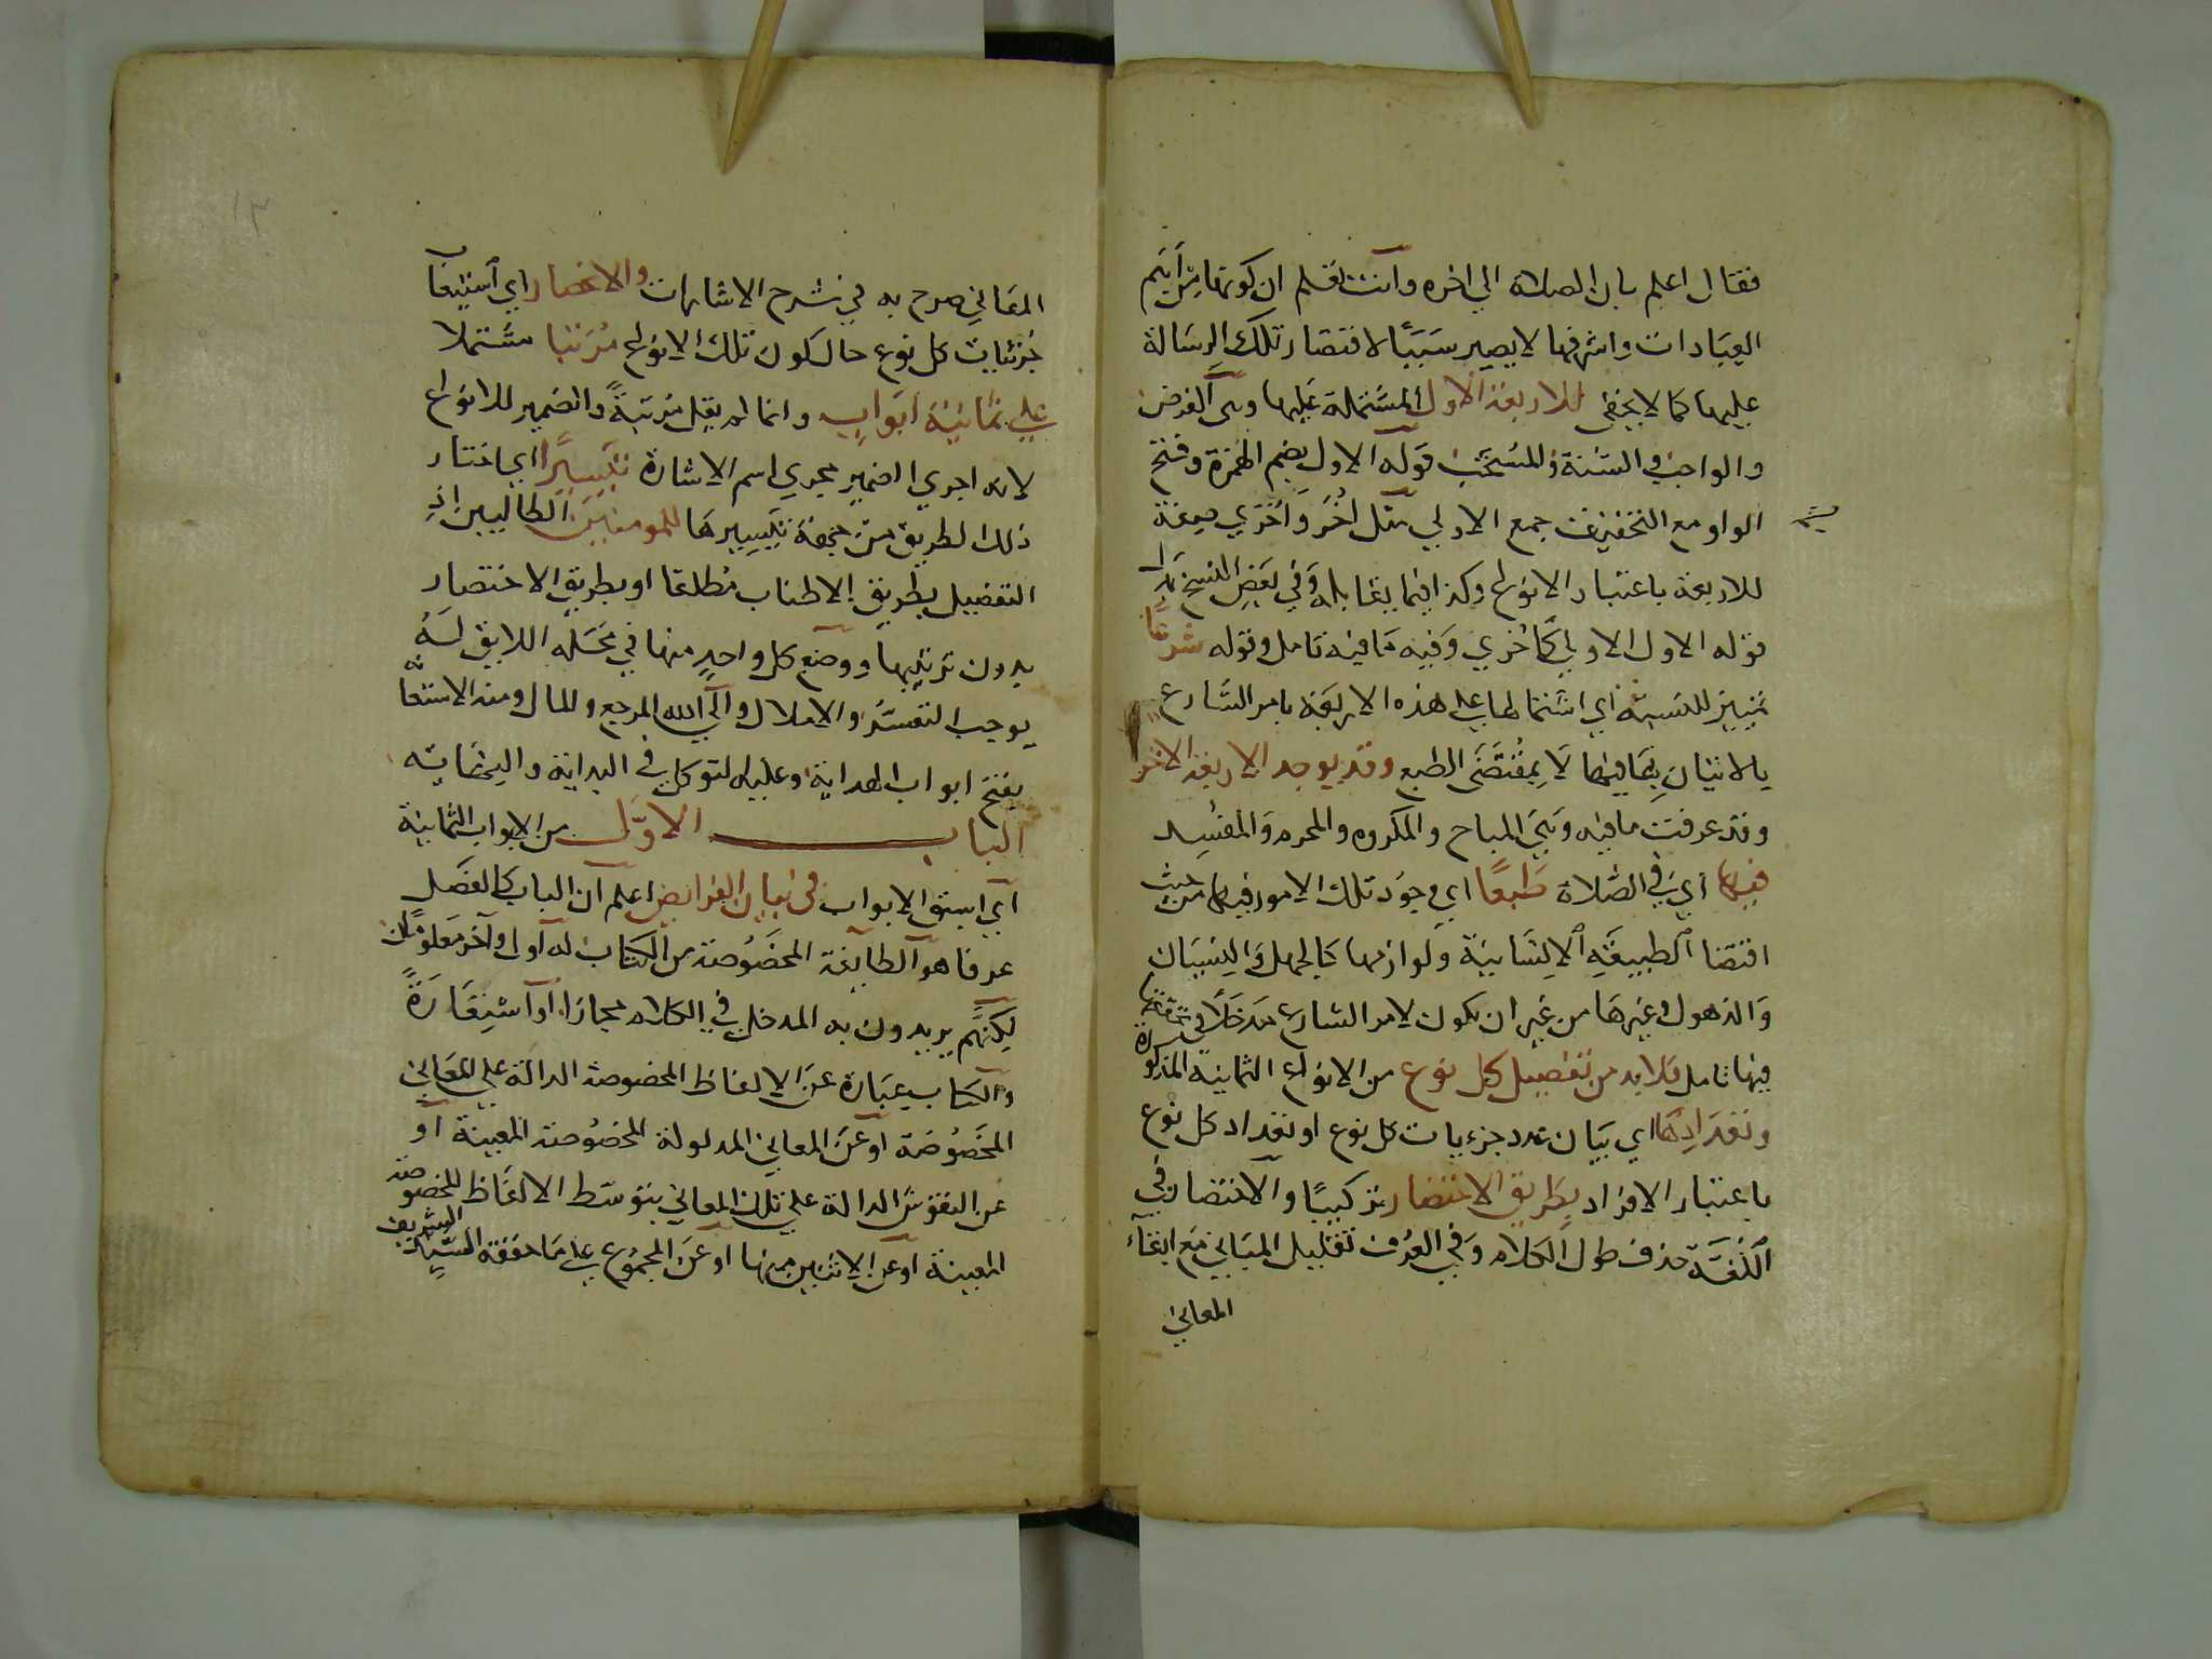 فقال اعلم بان الصلاة الي اخره وانت تعلم ان كونها من اهم
العبادات واشرفها لا يصير سببًا لاقتصار تلك الرسالة
عليها كما لا يخفى للاربعة الاول المشتملة عليها وهى الفرض
والواجب والسنة والمستحب قوله الاول بضم الهمزة وفتح
الواو مع التخفيف جمع الاولي مثل اُخَر وَاُخْري صفة
للاربعة باعتبار الانواع وكذا فيما يقابله وفي بعض النسخ بدل
قوله الاول الاولي كاخري وفيه ما فيه تامل وقوله شرعًا
تمييز للنسبة اي اشتمالها على هذه الاربعة بامر الشارع
بالاتيان بما فيها لا بمقتضى الطبع وقد يوجد الاربعة الاخر
وقد عرفت ما فيه وهى المباح والمكروه والمحرم والمفسد
فيها اي في الصلاة طبعًا اي وجود تلك الامور فيها من حيث
اقتضا الطبيعة الانسانية ولوازمها كالجهل والنسيان
والذهول وغيرها من غير ان يكون لامر الشارع مدخلا في تحققها
فيها تامل فلا بد من تفصيل كل نوع من الانواع الثمانية المذكورة
وتعدادها اي بيان عدد جزءيات كل نوع او تعداد كل نوع
باعتبار الافراد بطريق الاختصار تركيبًا والاختصار في
اللغة حذف طول الكلام وفي العرف تقليل المباني مع ابقاء
المعاني
المعاني صرح به في شرح الاشارات والانحصار اي استيفا
جزئيات كل نوع حال كون تلك الانواع مرتبا مشتملا
على ثمانية ابواب وانما لم يقل مرتبةً والضمير للانواع
لانه اجري الضمير مجري اسم الاشارة تيسيرًا اي اختار
ذلك الطريق من جهة تيسيرها للمومنين الطالبين اذ
التفصيل بطريق الاطناب مطلقا او بطريق الاختصار
بدون ترتيبها ووضع كل واحد منها في محله اللايق له
يوجب التعسر والاملال والي الله المرجع والمال ومنه الاستعانة
يفتح ابواب الهداية وعليه التوكل في البداية والنهاية
الباب الاول من الابواب الثمانية
اي اسبق الابواب في بيان الفرايض اعلم ان الباب كالفصل
عرفا هو الطايفة المخصوصة من الكتاب له اول وآخر معلومان
لكنهم يريدون به المدخل في الكلام مجازا او استعارة
والكتاب عبارة عن الالفاظ المخصوصة الدالة علي المعاني
المخصوصة او عن المعاني المدلولة المخصوصة المعينة او
عن النقوش الدالة علي تلك المعاني بتوسط الالفاظ المخصوصة
المعينة او عن الاثنين منها او عن المجموع على ما حققه السيد الشريف
١٣